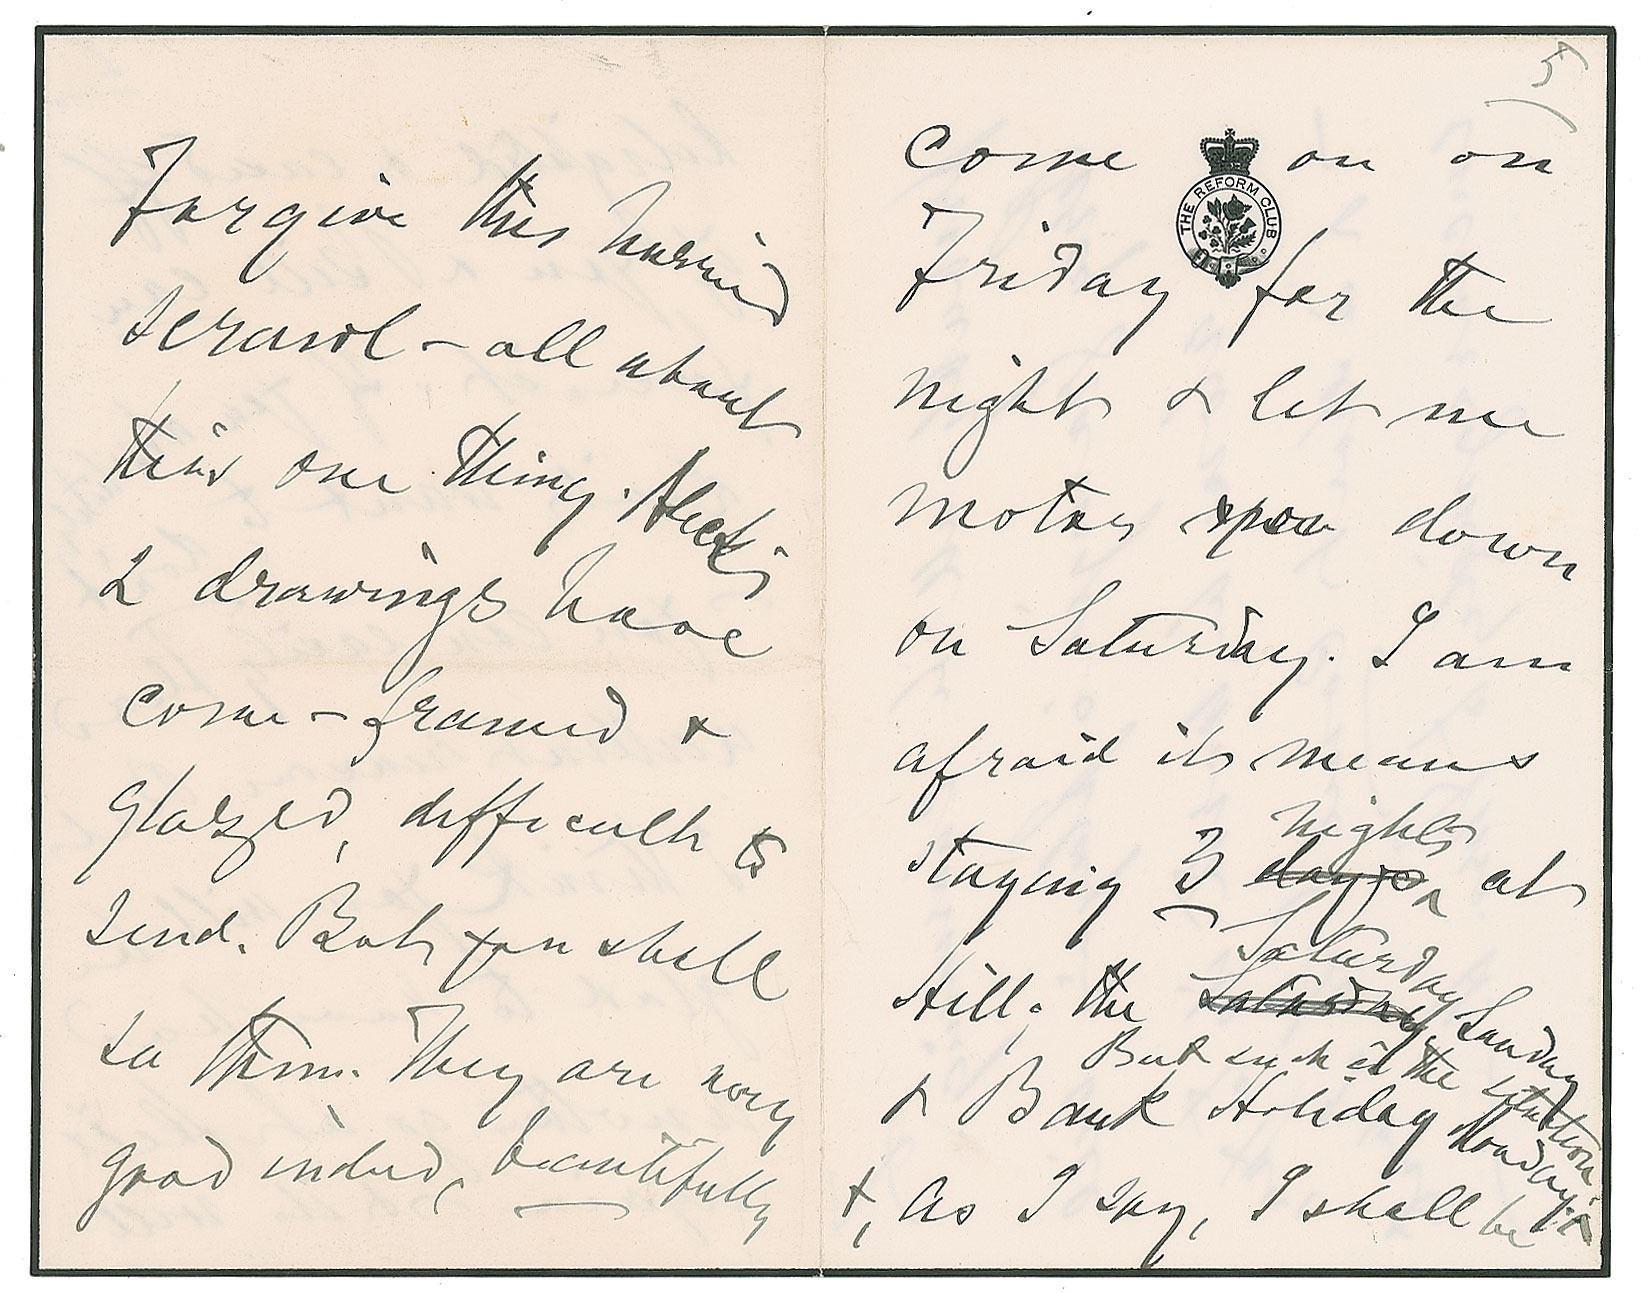 Forgive this hurried
scrawl – all about
this one thing. Aleck's
2 drawings have
come – framed &
glazed, difficult to
send. But you shall
see them. They are very
good indeed, beautifully
5
come on on
THE REFORM CLUB
Friday for the
night & let me
motor you down
on Saturday. I am
afraid it means
nights
staying 3 days at
Saturday
Hill; the Saturday, Sunday
But such is the situation
& Bank Holiday Monday;
&, as I say, I shall be